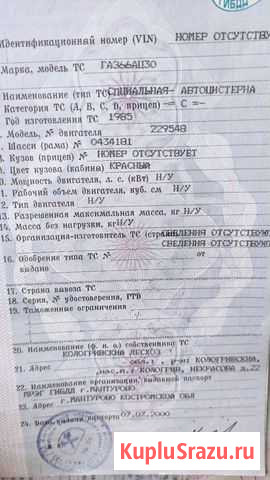 ГИБДД
Идентификационный номер (VIN) НОМЕР ОТСУТСТВУ
Марка, модель ТС ГАЗ66АЦ30
Наименование (тип ТС) СПЦИАЛЬНАЯ- АВТОЦИСТЕРНА
Категория ТС (А, В, С, D, прицеп) -= С =-
Год изготовления ТС 1985
Модель, № двигателя 229548
Шасси (рама) № 0434181
Кузов (прицеп) № НОМЕР ОТСУТСТВУЕТ
Цвет кузова (кабины) КРАСНЫЙ
0. Мощность двигателя, л. с. (кВт) Н/У
1. Рабочий объем двигателя, куб. см Н/У
2. Тип двигателя Н/У
13. Разрешенная максимальная масса, кг Н/У
14. Масса без нагрузки, кг Н/У
15. Организация-изготовитель ТС (страна) СВЕДЕНИЯ ОТСУТСТВУЮ
СВЕДЕНИЯ ОТСУТСТВУЮТ
16. Одобрение типа ТС № от
выдано
17. Страна вывоза ТС
18. Серия, № удостоверения, ГТД
19. Таможенные ограничения
20. Наименование (ф. и. о.) собственника ТС
КОЛОГРИВСКИЙ ЛЕСХОЗ
21. Адрес обл., р-он КОЛОГРИВСКИЙ,
нас.п.г КОЛОГРИВ, НЕКРАСОВА д.22
22. Наименование организации, выдавшей паспорт
МРЭГ ГИБДД г.МАНТУРОВО
23. Адрес г.МАНТУРОВО КОСТРОМСКОЙ ОБЛ
24. Дата выдачи паспорта 07.07.2000
KupluSrazu.ru